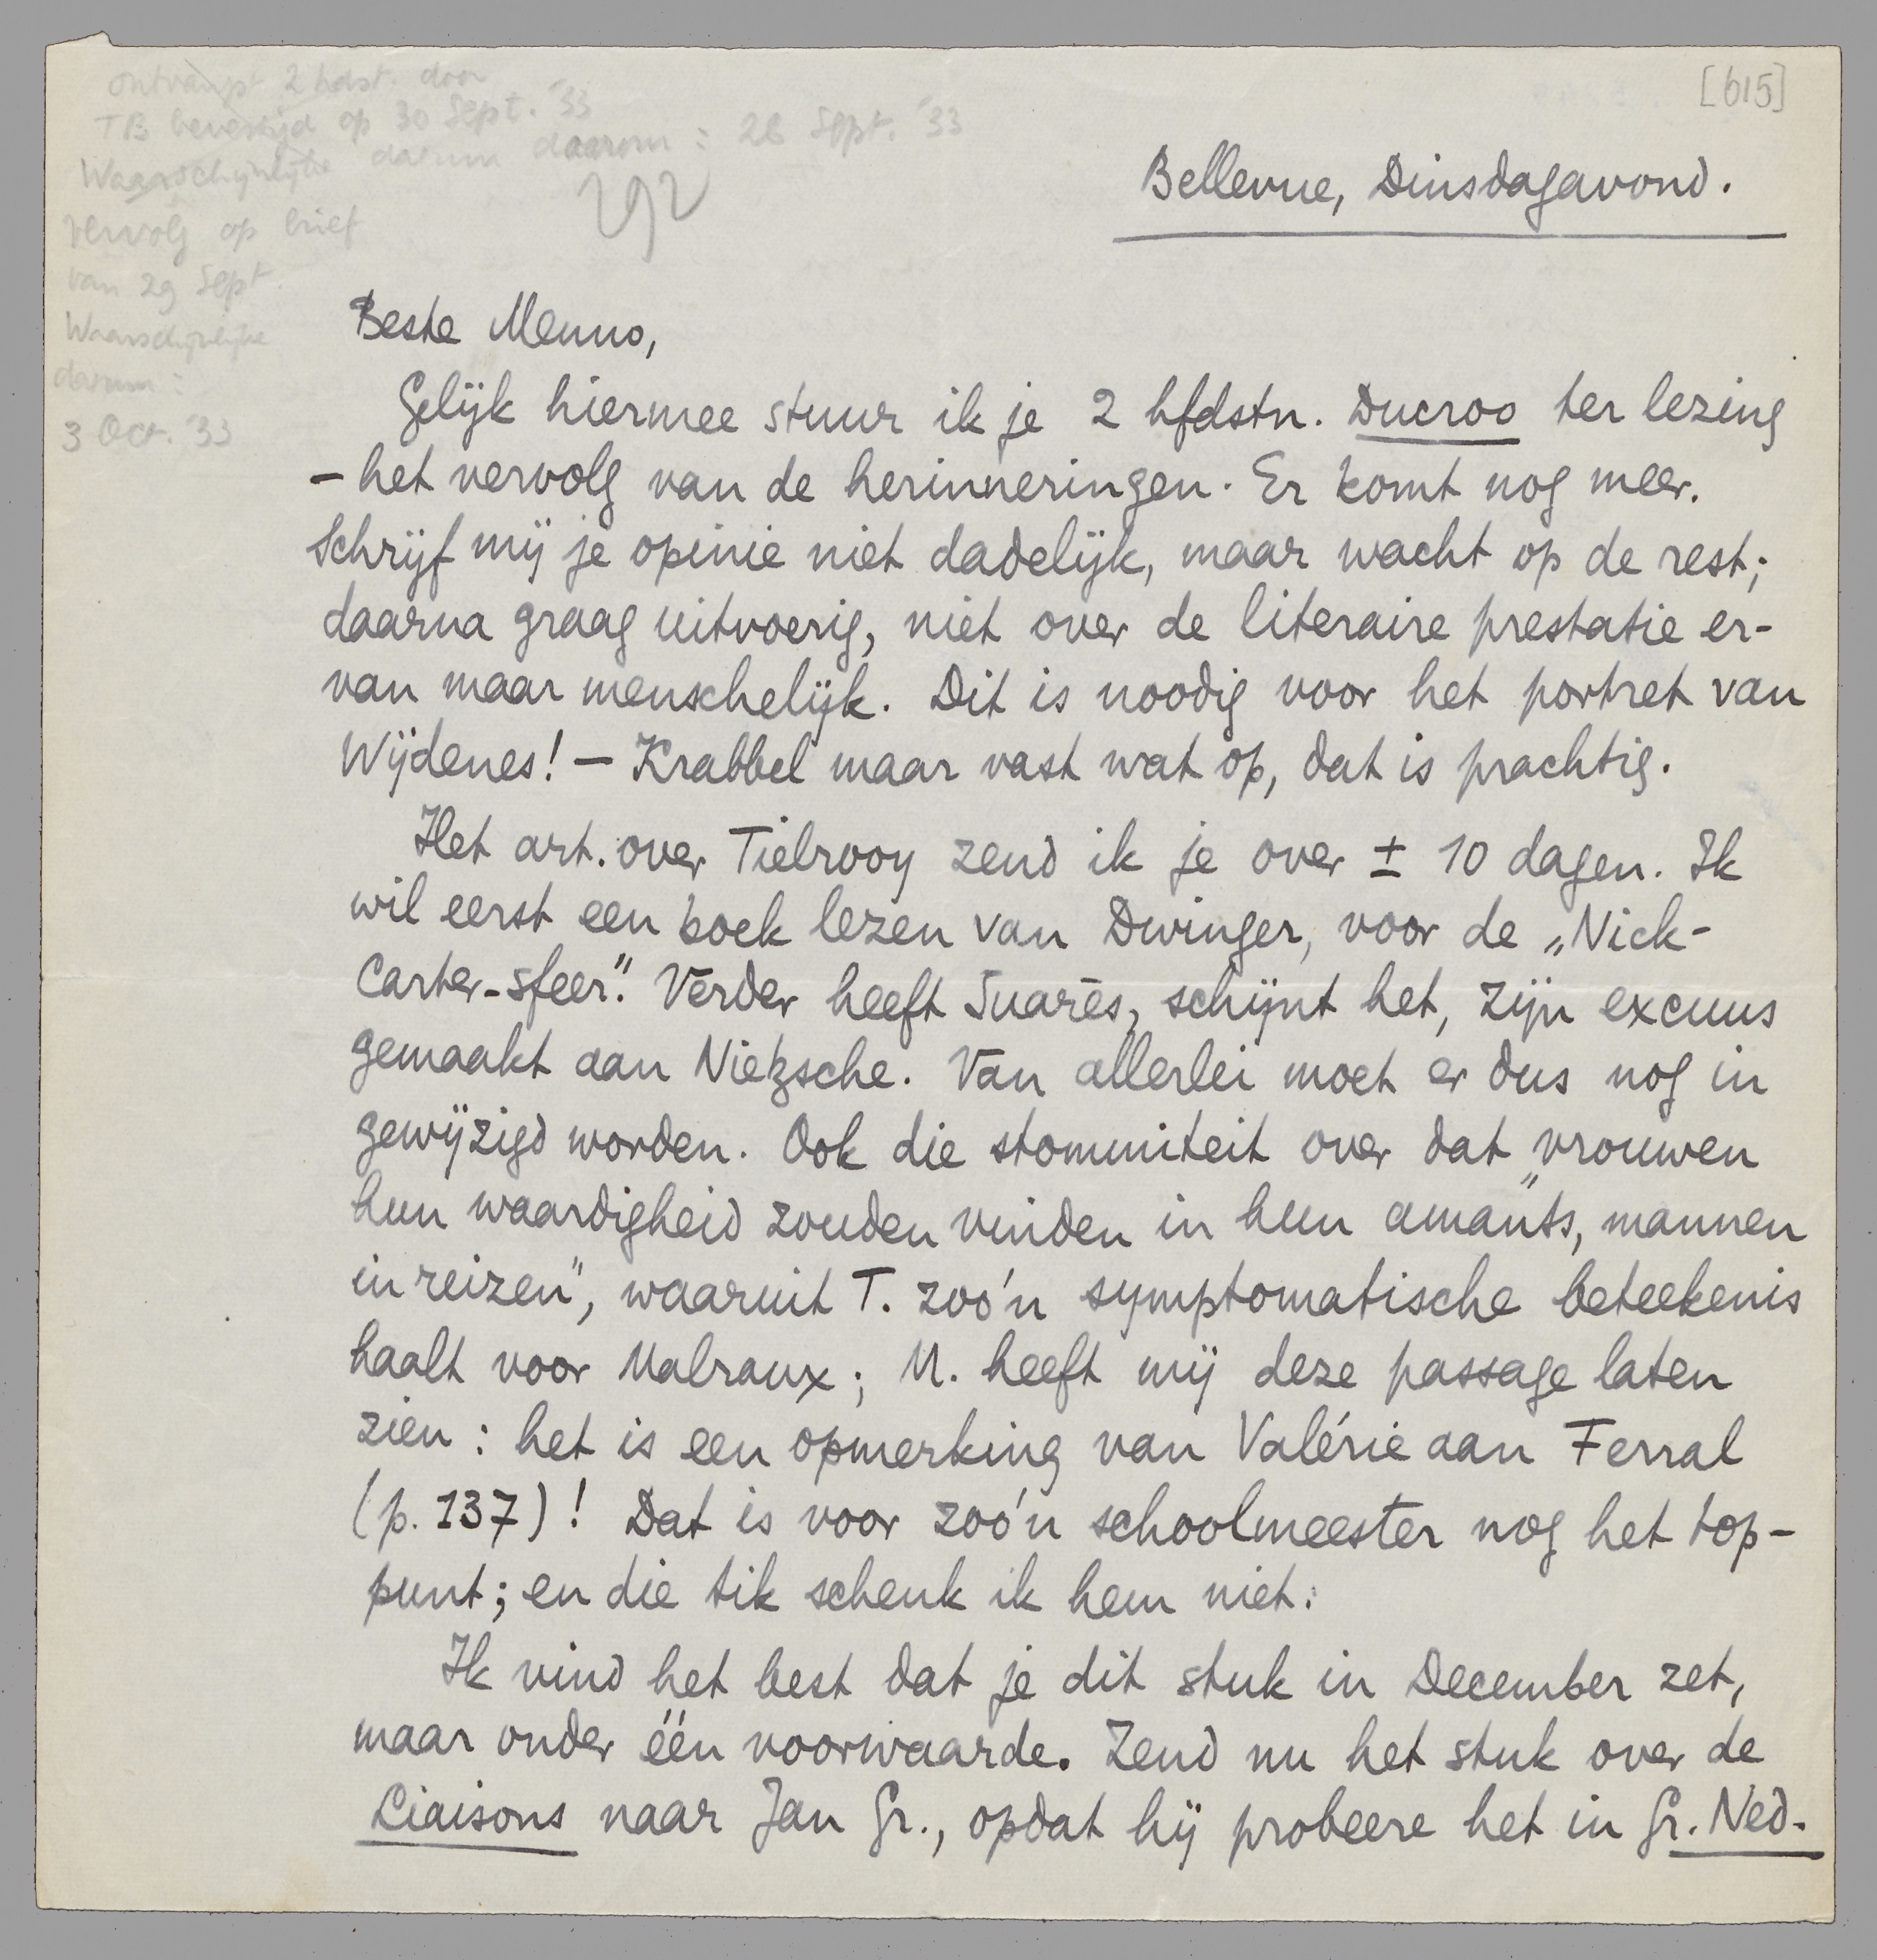 [615]
ontvangst 2 hdst. door
TB bevestigd op 30 Sept. '33
Waarschijnlijke datum daarom : 26 Sept. '33
292
vervolg op brief
van 29 Sept.
Waarschijnlijke
datum :
3 Oct. '33
Bellevue, Dinsdagavond.
Beste Menno,
Gelijk hiermee stuur ik je 2 hfdstn. Ducroo ter lezing
– het vervolg van de herinneringen. Er komt nog meer.
Schrijf mij je opinie niet dadelijk, maar wacht op de rest;
daarna graag uitvoerig, niet over de literaire prestatie er-
van maar menschelijk. Dit is noodig voor het portret van
Wijdenes! – Krabbel maar vast wat op, dat is prachtig.
Het art. over Tielrooy zend ik je over ± 10 dagen. Ik
wil eerst een boek lezen van Dwinger, voor de „Nick-
Carter-sfeer". Verder heeft Suarès, schijnt het, zijn excuus
gemaakt aan Nietzsche. Van allerlei moet er dus nog in
gewijzigd worden. Ook die stommiteit over dat „vrouwen
hun waardigheid zouden vinden in hun amants, mannen
in reizen", waaruit T. zoo'n symptomatische beteekenis
haalt voor Malraux; M. heeft mij deze passage laten
zien : het is een opmerking van Valérie aan Ferral
(p. 137)! Dat is voor zoo'n schoolmeester nog het top-
punt; en die tik schenk ik hem niet.
Ik vind het best dat je dit stuk in December zet,
maar onder één voorwaarde. Zend nu het stuk over de
Liaisons naar Jan Gr., opdat hij probeere het in Gr. Ned.